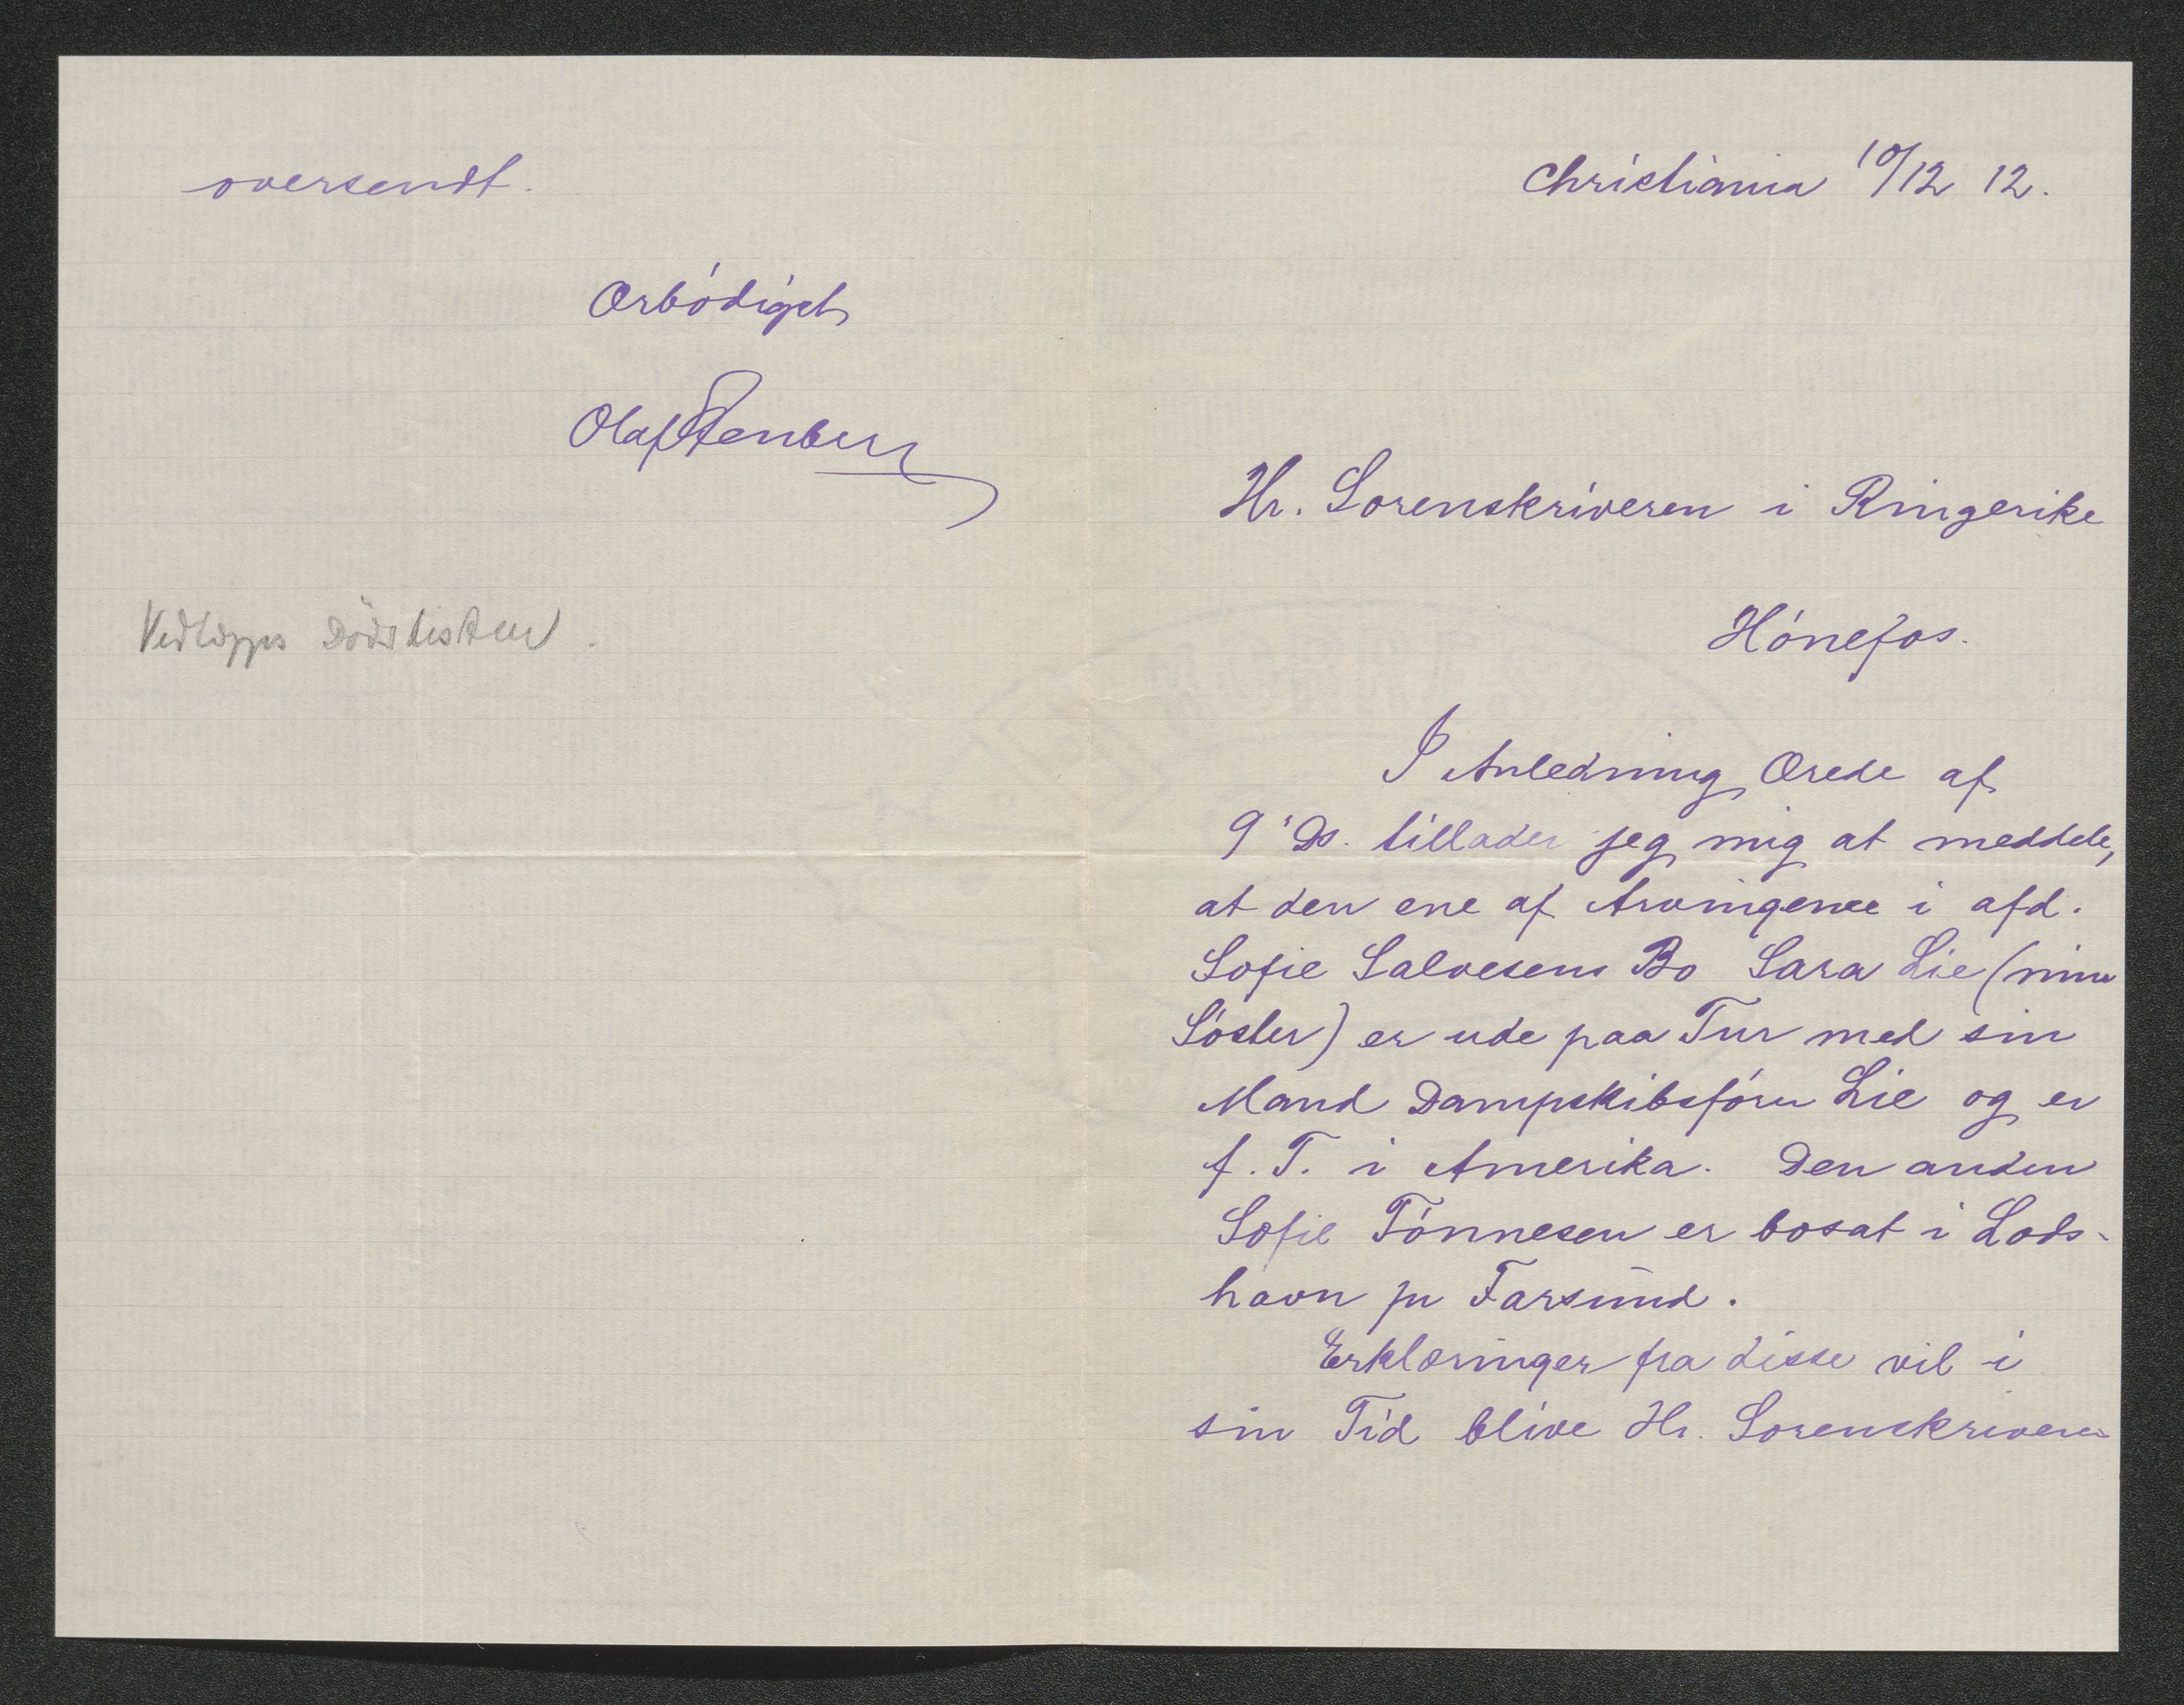 Christiania 10/12 12.
Hr. Sorenskriveren i Ringerike
Hónefos.
I Anledning Ærede af
9' Ds. tillader jeg mig at meddele,
at den ene af Arvingerne i afd.
Sofie Salvesens Bo Sara Lie (min
Sóster) er ude paa Tur med sin
Mand Dampskibsfórer Lie og er
f. T. i Amerika. Den anden
Sofie Tónnesen er bosat i Lods-
havn pr Farsund.
Erklæringer fra disse vil i
sin Tid blive Hr. Sorenskriveren
oversendt.
Ærbódigst
Olaf Stenberg
Vedlægges Dödslisten.